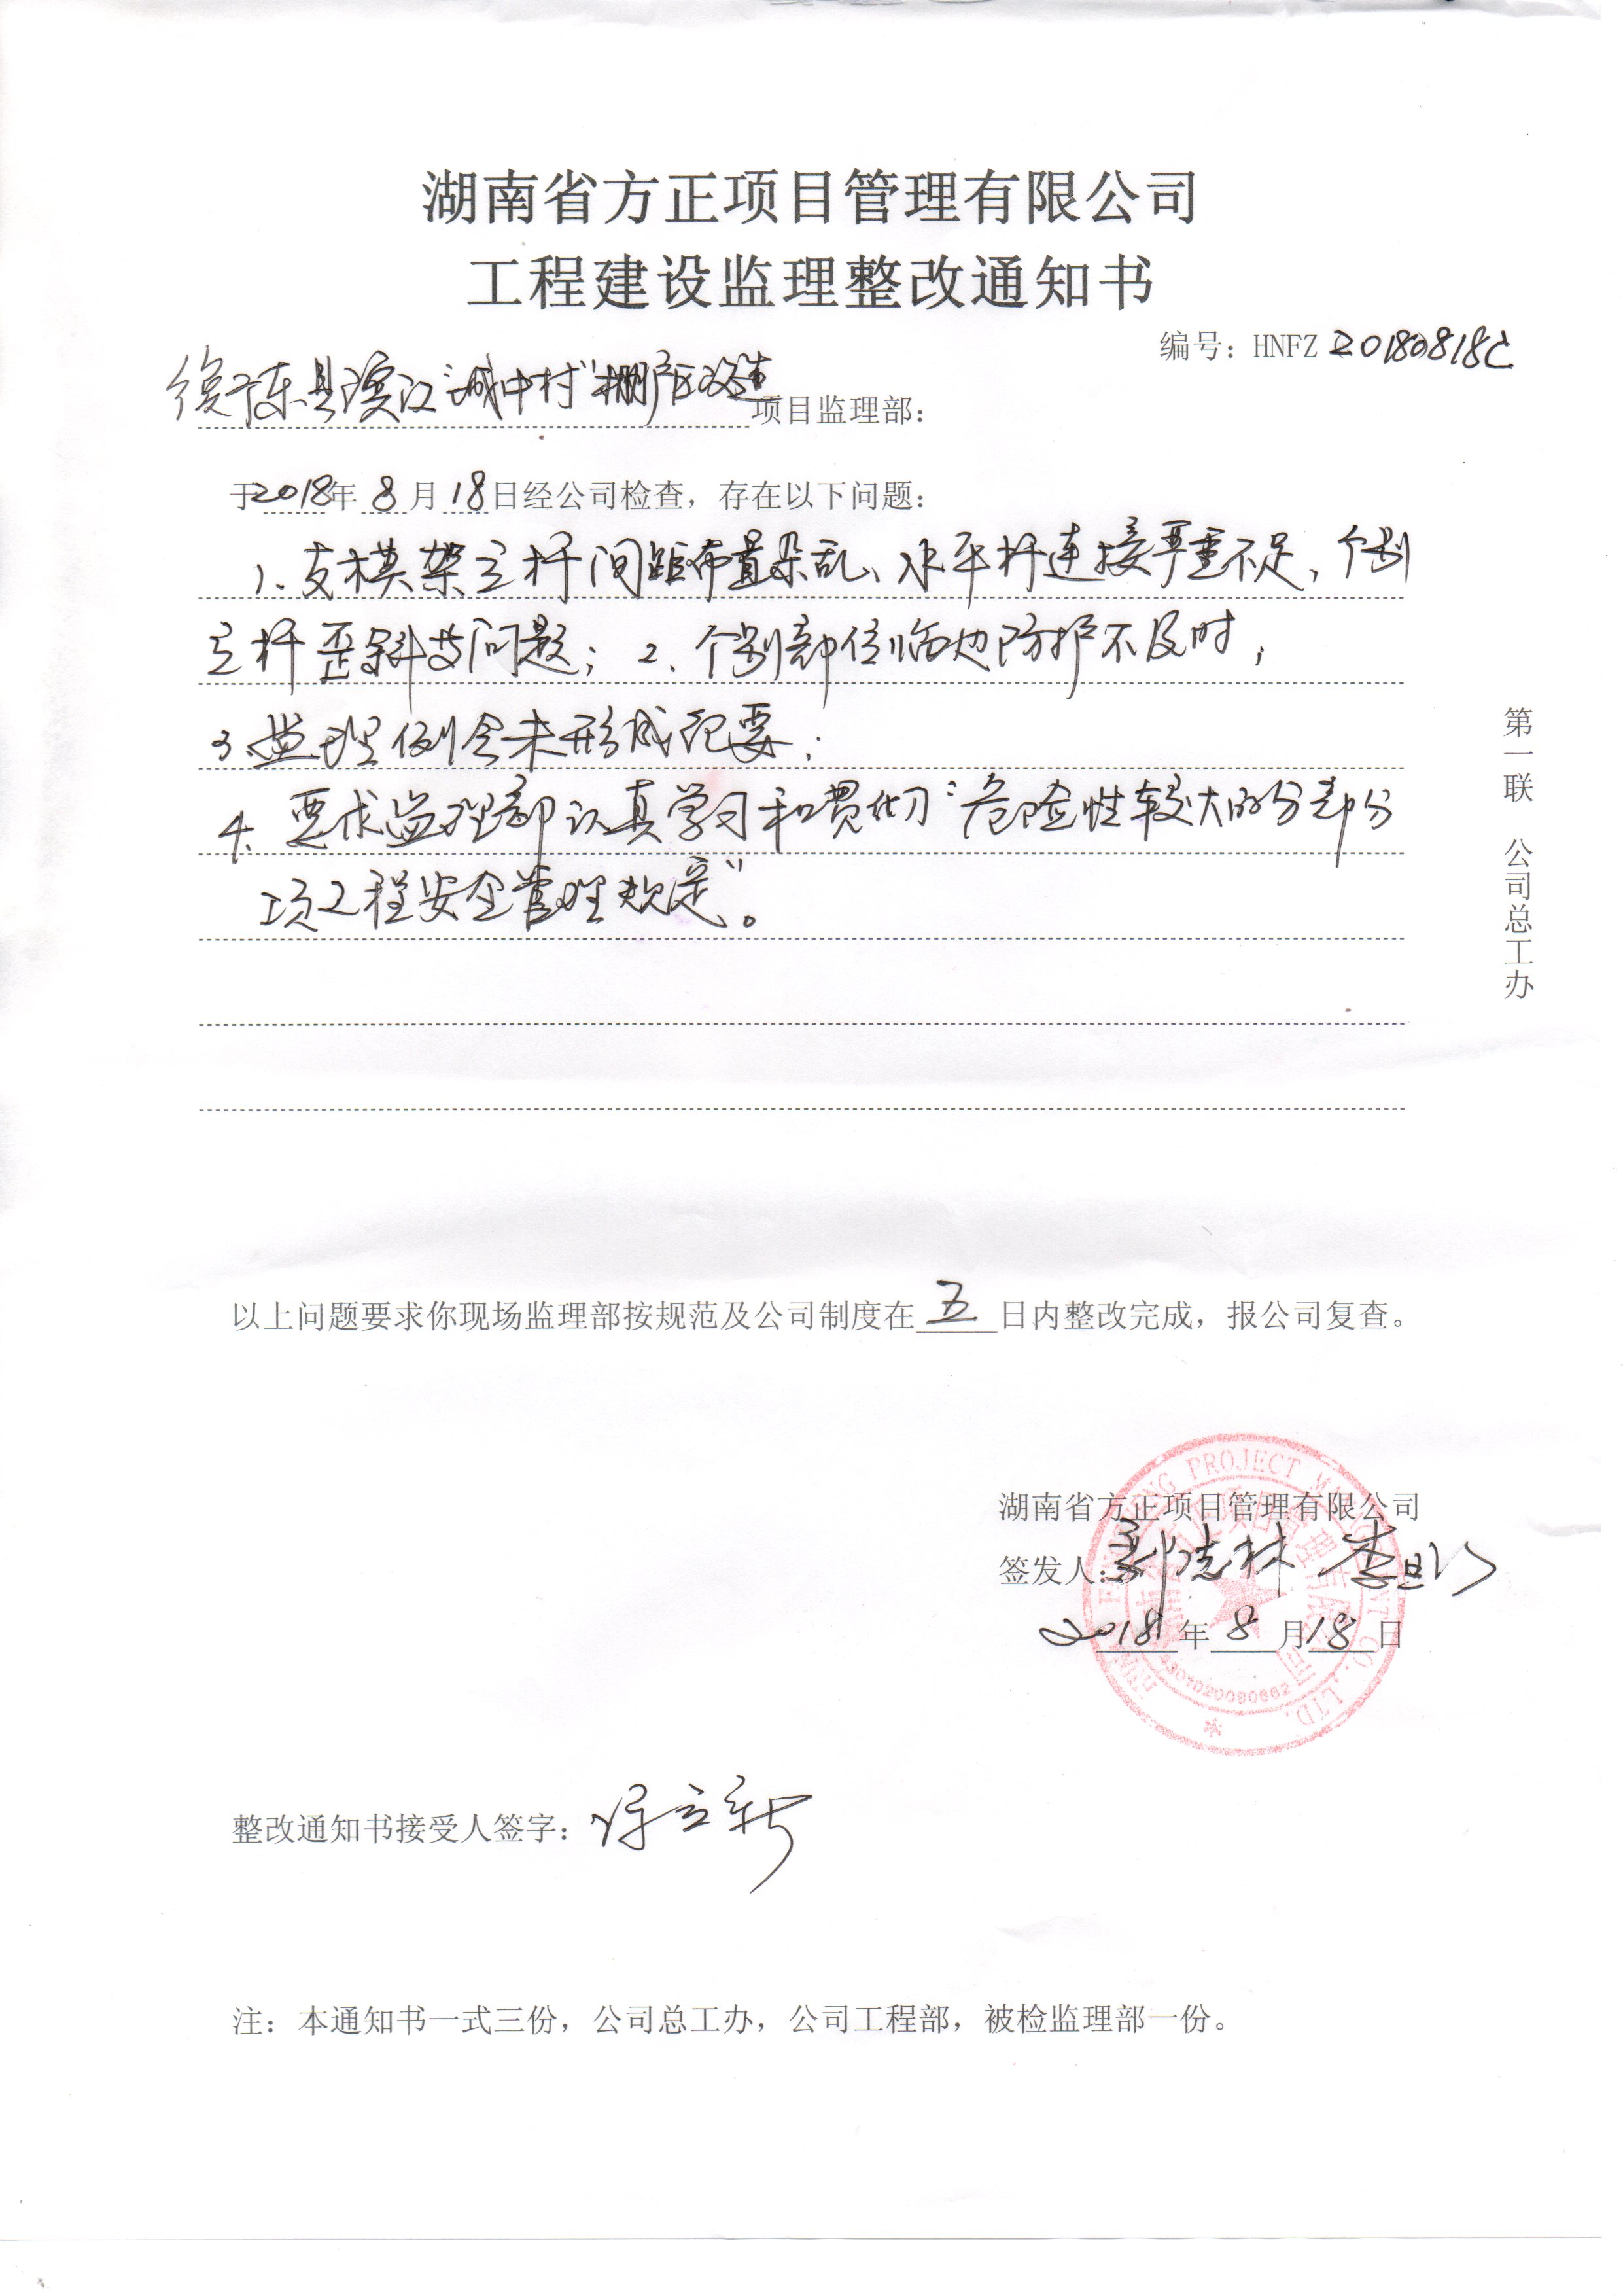 湖南省方正项目管理有限公司
工程建设监理整改通知书
编号：HNFZ 20180818C
绥宁东县滨江"城中村"棚户区改造项目监理部：
于2018年8月18日经公司检查，存在以下问题：
1、支模架立杆间距布置杂乱、水平杆连接严重不足，个别
立杆歪斜等问题；2、个别部位临边防护不及时；
3、监理例会未形成纪要；
4、要求监理部认真学习和贯彻"危险性较大的分部分
项工程安全管理规定"。
第一联 公司总工办
以上问题要求你现场监理部按规范及公司制度在五日内整改完成，报公司复查。
湖南省方正项目管理有限公司
签发人：
2018年8月18日
整改通知书接受人签字：
注：本通知书一式三份，公司总工办，公司工程部，被检监理部一份。